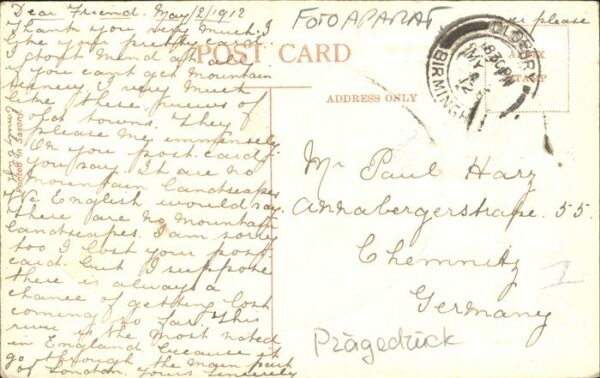 Dear Friend. May/2/1912
Thank you very much. I
like your pretty card
I dont mind at all
if you can't get mountain
scenery I very much
like these views of
old towns. They
please me immensely
On you post card
you say. It are no
mountain landscapes
We English would say
there are no mountain
landscapes. I am sorry
too I lost your post
card. But I suppose
there is always a
chance of getting lost
coming so far. This
river is the most noted
in England because it
go through the main part
of London. Yours sincerely
FOTOAPARAT
please
POST CARD
ADDRESS ONLY
AFFIX
STAMP
OLDBURY
BIRMINGH
8 30 PM
MY
12
Printed in Saxony
Mr Paul Harz
Annabergerstrape. 55.
Chemnitz
Germany
Prägedrück